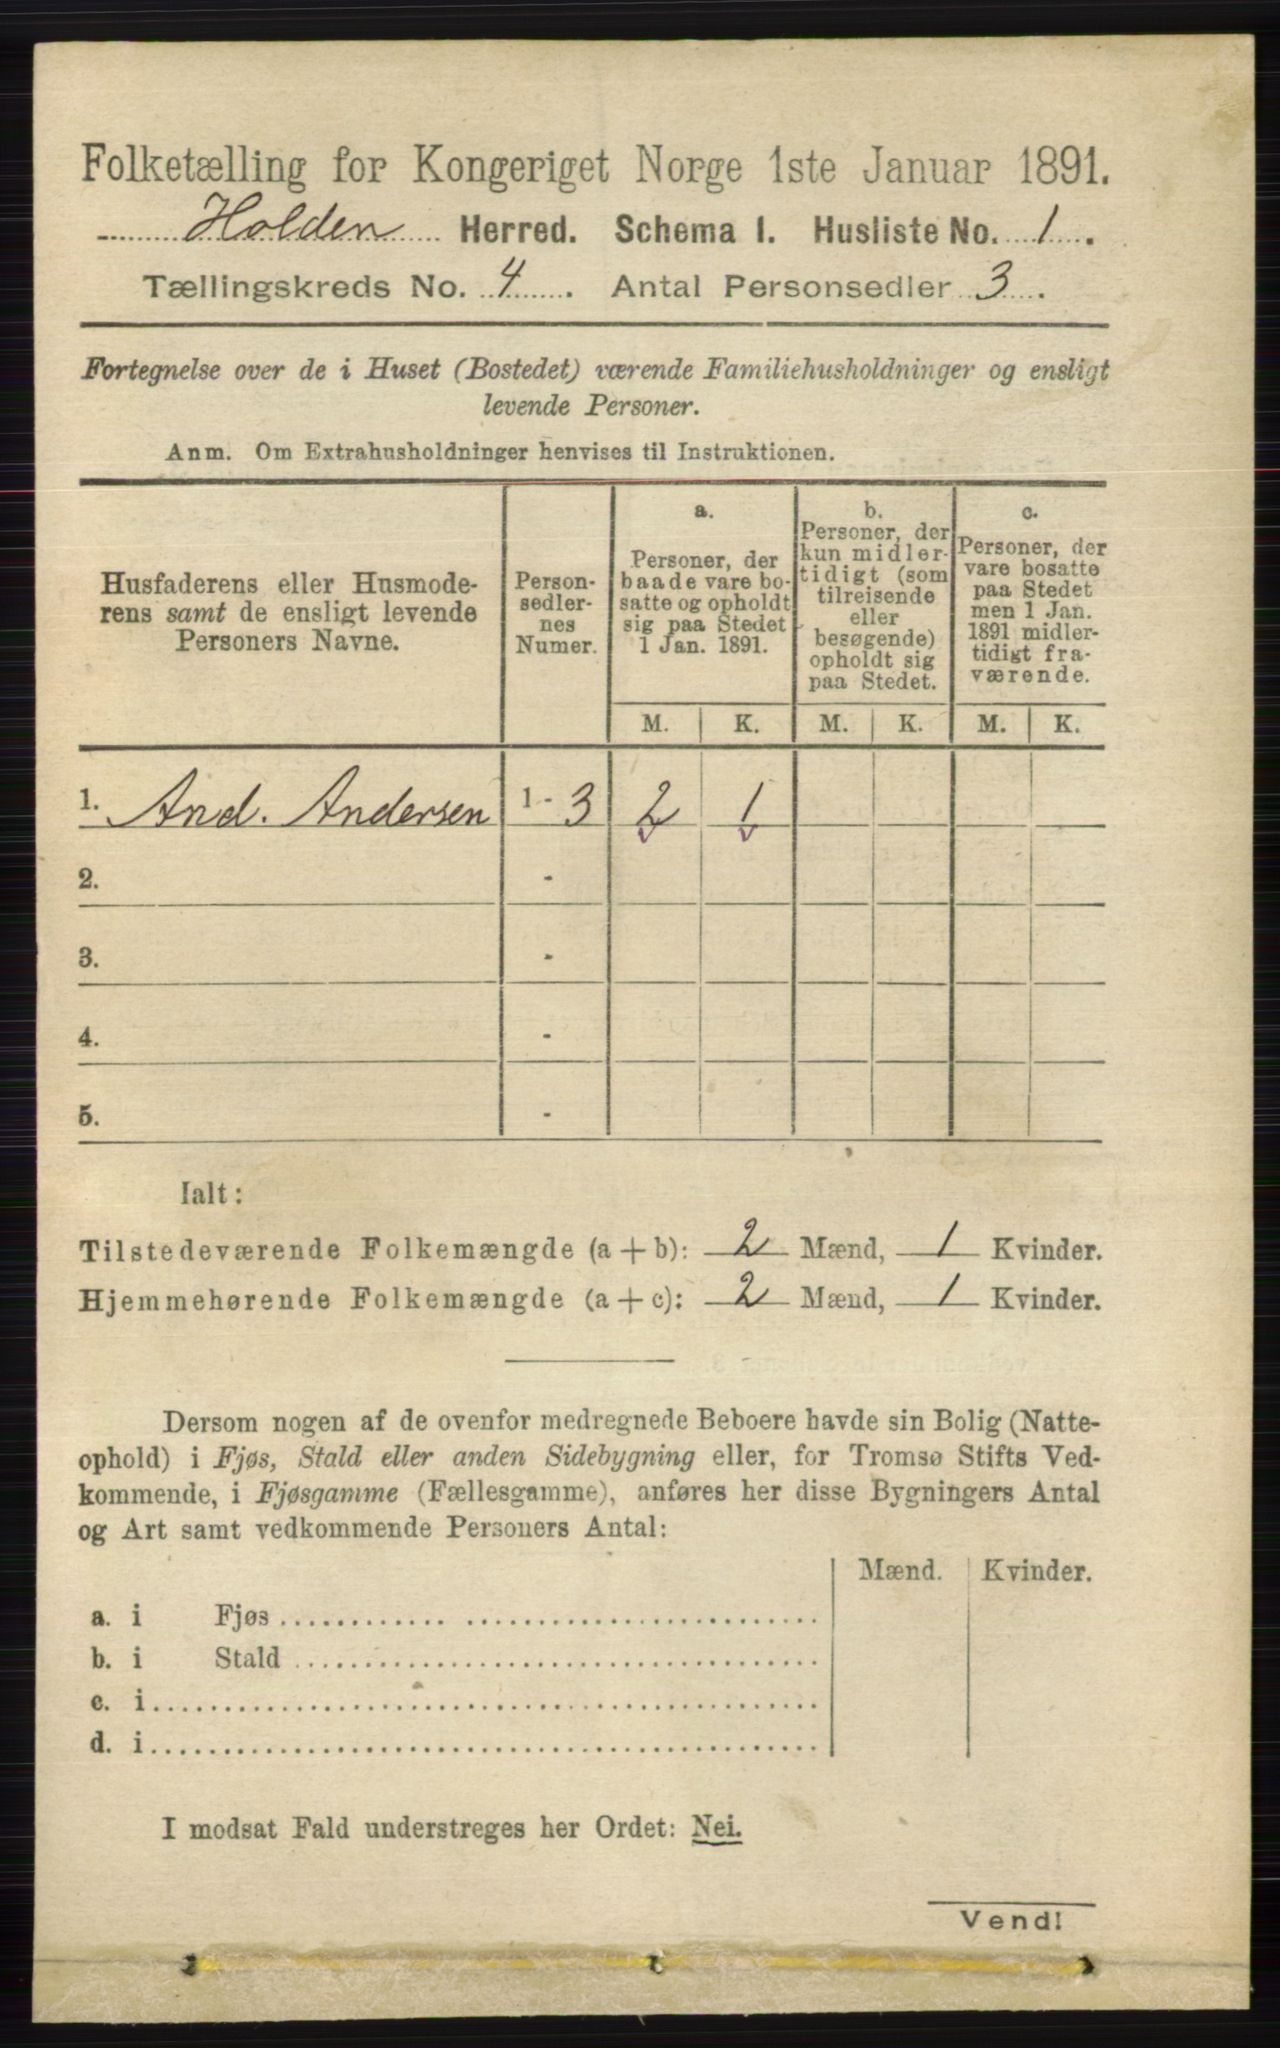 Folketælling for Kongeriget Norge 1ste Januar 1891.
Holden Herred. Schema I. Husliste No. 1.
Tællingskreds No. 4. Antal Personsedler 3.
Fortegnelse over de i Huset (Bostedet) værende Familiehusholdninger og ensligt
levende Personer.
Anm. Om Extrahusholdninger henvises til Instruktionen.
Husfaderens eller Husmode-
rens samt de ensligt levende
Personers Navne.
Person-
sedler-
nes
Numer.
a.
Personer, der
baade vare bo-
satte og opholdt
sig paa Stedet
1 Jan. 1891.
b.
Personer, der
kun midler-
tidigt (som
tilreisende
eller
besøgende)
opholdt sig
paa Stedet.
c.
Personer, der
vare bosatte
paa Stedet
men 1 Jan.
1891 midler-
tidigt fra-
værende.
M. K. M. K. M. K.
1. And. Andersen 1 - 3 2 1
2. -
3. -
4. -
5. -
Ialt:
Tilstedeværende Folkemængde (a + b): 2 Mænd, 1 Kvinder.
Hjemmehørende Folkemængde (a + c): 2 Mænd, 1 Kvinder.
Dersom nogen af de ovenfor medregnede Beboere havde sin Bolig (Natte-
ophold) i Fjøs, Stald eller anden Sidebygning eller, for Tromsø Stifts Ved-
kommende, i Fjøsgamme (Fællesgamme), anføres her disse Bygningers Antal
og Art samt vedkommende Personers Antal:
Mænd. Kvinder.
a. i Fjøs
b. i Stald
c. i
d. i
I modsat Fald understreges her Ordet: Nei.
Vend!